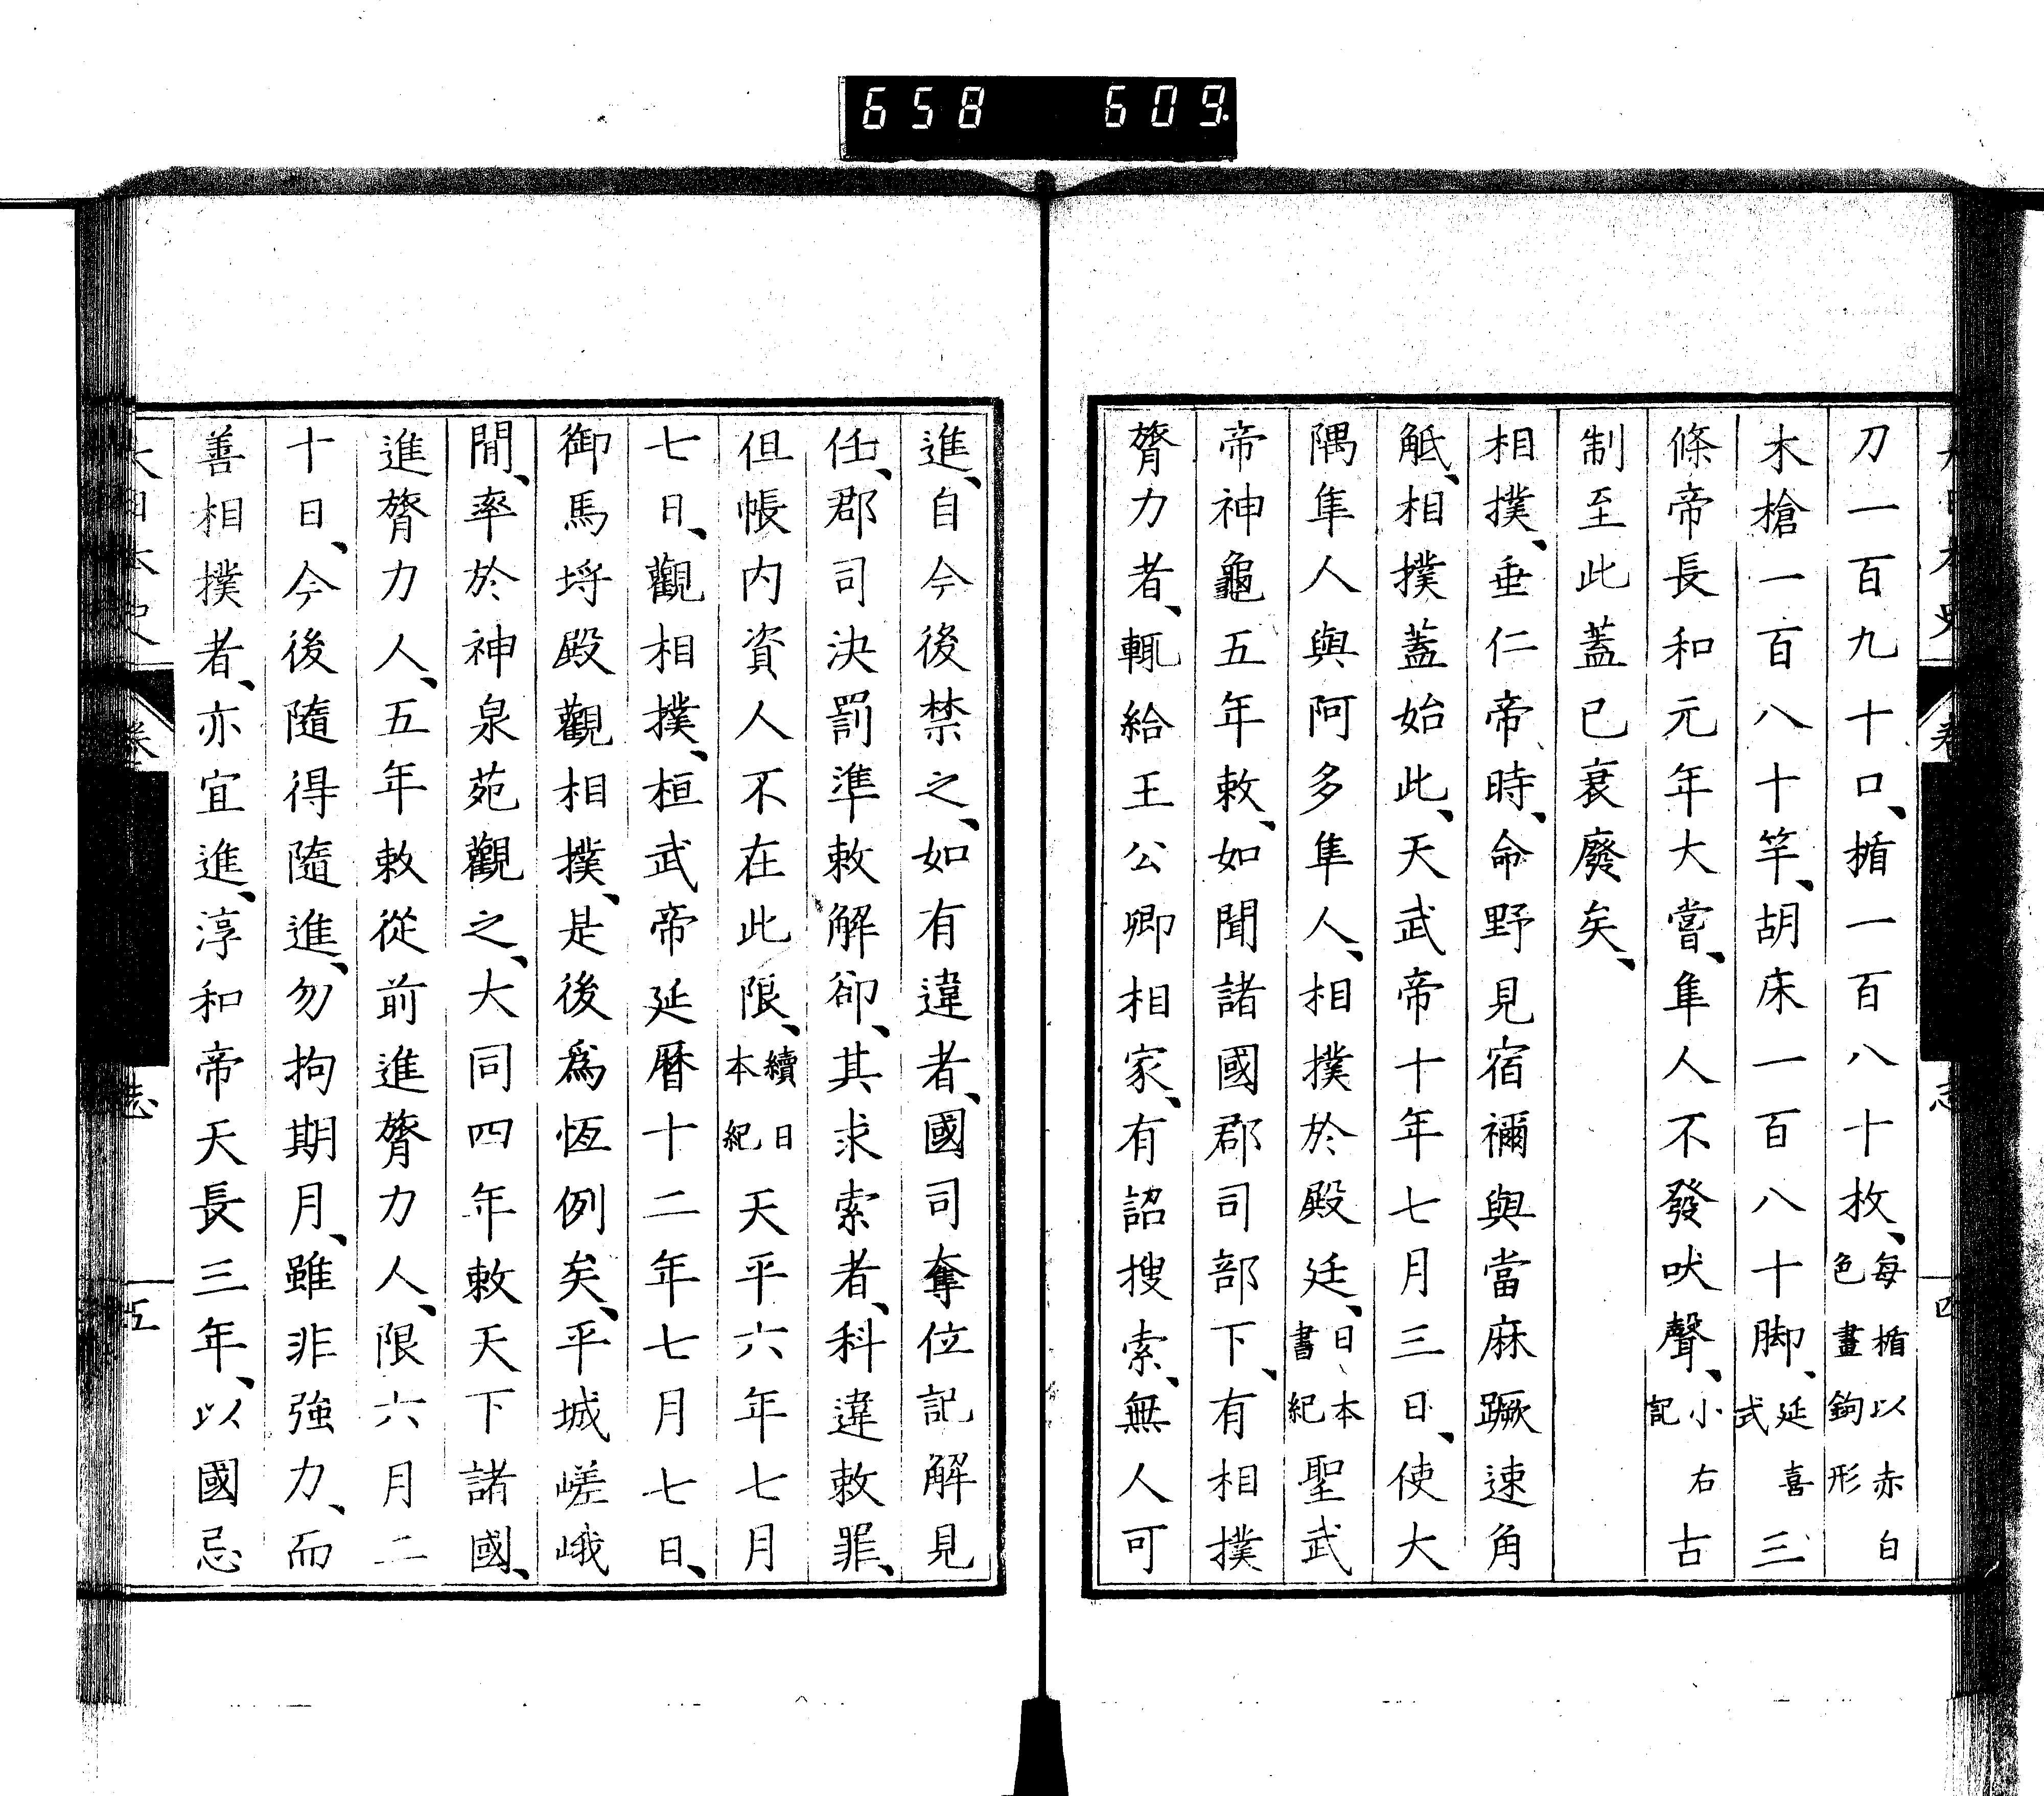 658 609
刀一百九十口、楯一百八十枚、每楯以赤白色畫鉤形
木槍一百八十竿、胡床一百八十脚、延喜武三
條帝長和元年大嘗、隼人不發吠聲、小右記古
制至此蓋已衰廢矣、
相撲、垂仁帝時、命野見宿禰與當麻蹶速角
觝、相撲蓋始此、天武帝十年七月三日、使大
隅隼人與阿多隼人、相撲於殿廷、日本書紀聖武
帝神龜五年敕、如聞諸國郡司部下、有相撲
膂力者、輒給王公卿相家、有詔搜索、無人可
進、自今後禁之、如有違者、國司奪位記解見
任、郡司決罰準敕解卻、其求索者、科違敕罪、
但帳內資人不在此限、續日本紀天平六年七月
七日、觀相撲、桓武帝延曆十二年七月七日、
御馬埒殿觀相撲、是後爲恆例矣、平城嵯峨
閒、率於神泉苑觀之、大同四年敕天下諸國、
進膂力人、五年敕從前進膂力人、限六月二
十日、今後隨得隨進、勿拘期月、雖非強力、而
善相撲者、亦宜進、淳和帝天長三年、以國忌